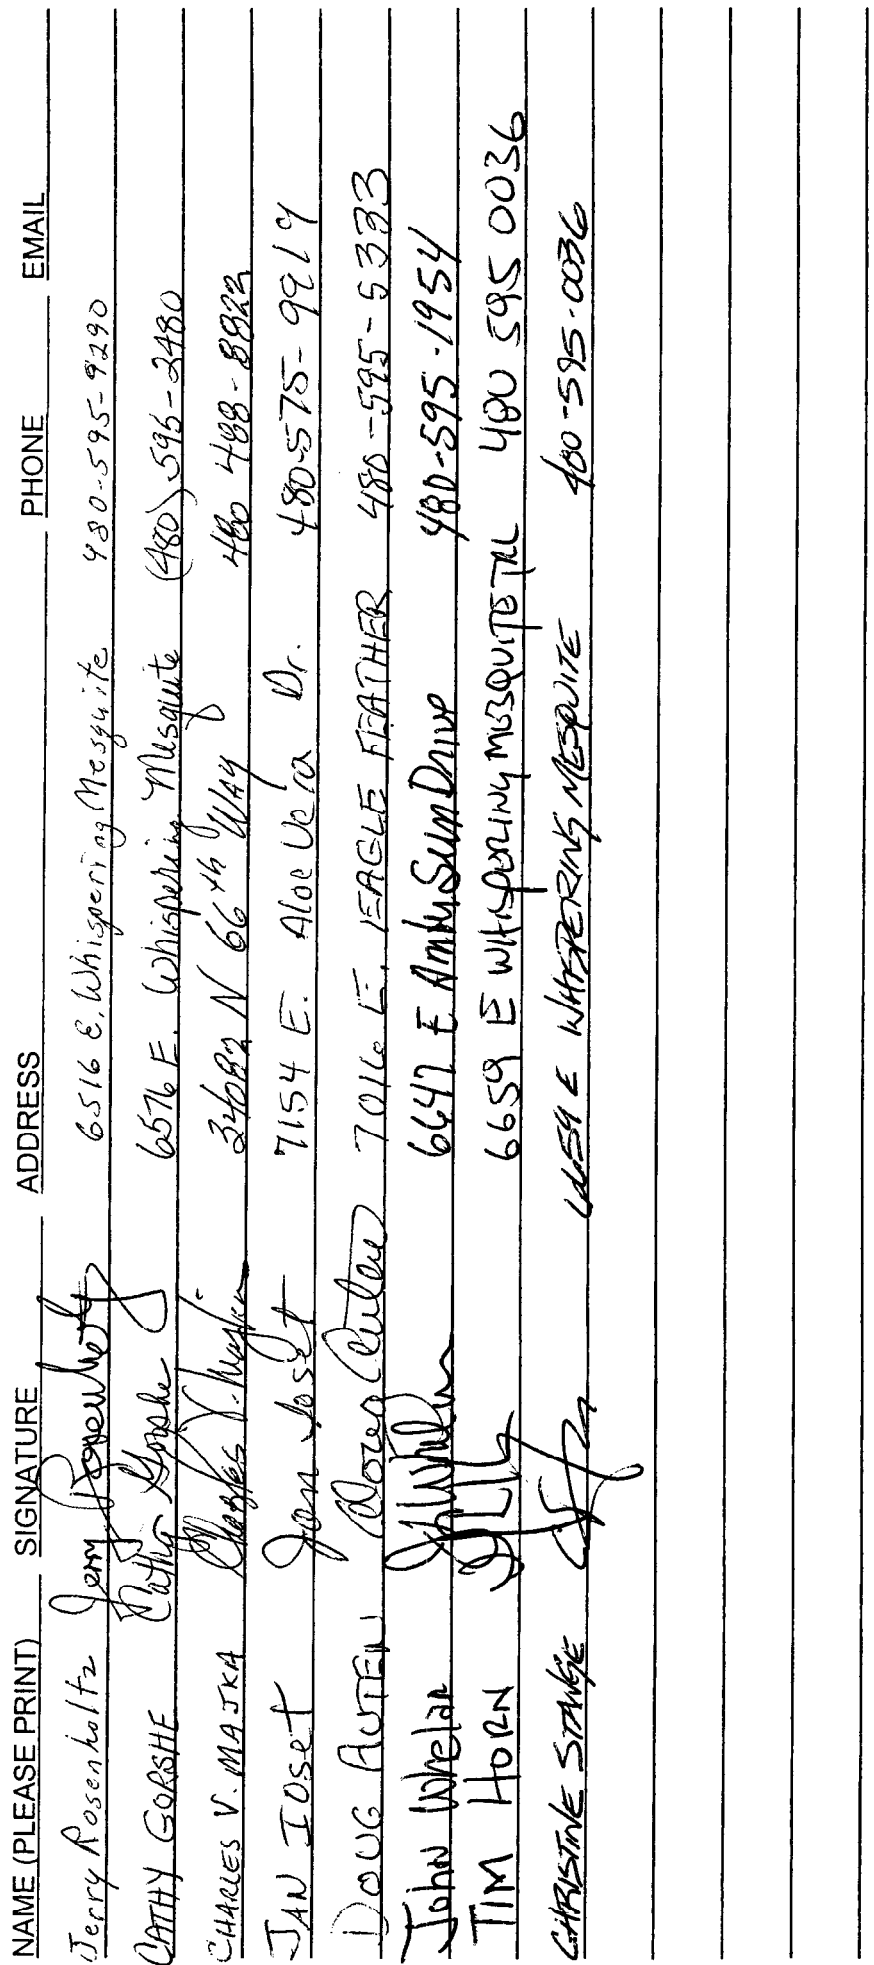 NAME (PLEASE PRINT) SIGNATURE ADDRESS PHONE EMAIL
Jerry Rosenholtz Jerry Rosenholtz 6516 E. Whispering Mesquite 480-595-9290
CATHY GORSHE Cathy Gorshe 6576 E. Whispering Mesquite (480) 595-2480
CHARLES V. MAJKA Charles V. Majka 34082 N 66th WAY 480 488-8822
JAN IOSET Jan Ioset 7154 E. Aloe Vera Dr. 480-575-9919
DOUG AUTEN Doug Auten 7016 E. EAGLE FEATHER 480-595-5333
John Whelan 6647 E Amber Sun Drive 480-595-1954
TIM HORN 6659 E WHISPERING MESQUITE TRL 480 595 0036
CHRISTINE STANGE 6659 E WHISPERING MESQUITE 480-595-0036